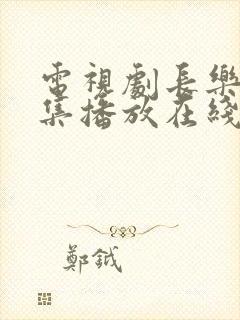 電視劇長樂
集播放在綫
鄭鉞